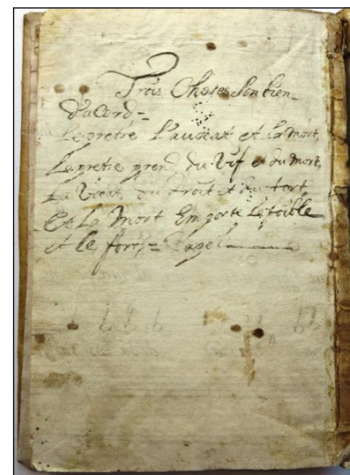 Trois Choses sont bien
d'acord =
Le pretre l'avocat et la mort
Le pretre prend du vif et du mort
La vocat du droit et du tort
Et la mort Emporte le foible
et le fort =